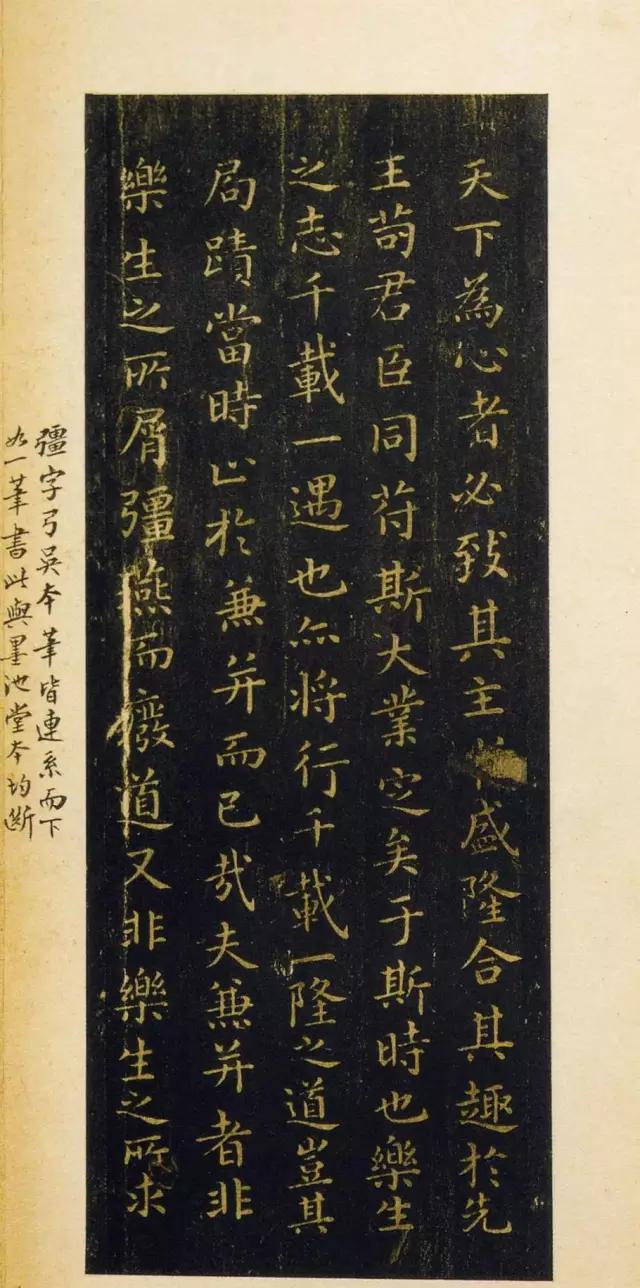 天下為心者必致其主盛隆合其趣於先
王苟君臣同苻斯大業定矣于斯時也樂生
之志千載一遇也亦將行千載一隆之道豈其
局蹟當時止於兼并而已哉夫兼并者非
樂生之所屑彊燕而廢道又非樂生之所求
彊字弓吳本筆皆連系而下
如一筆書此與墨池堂本均斷